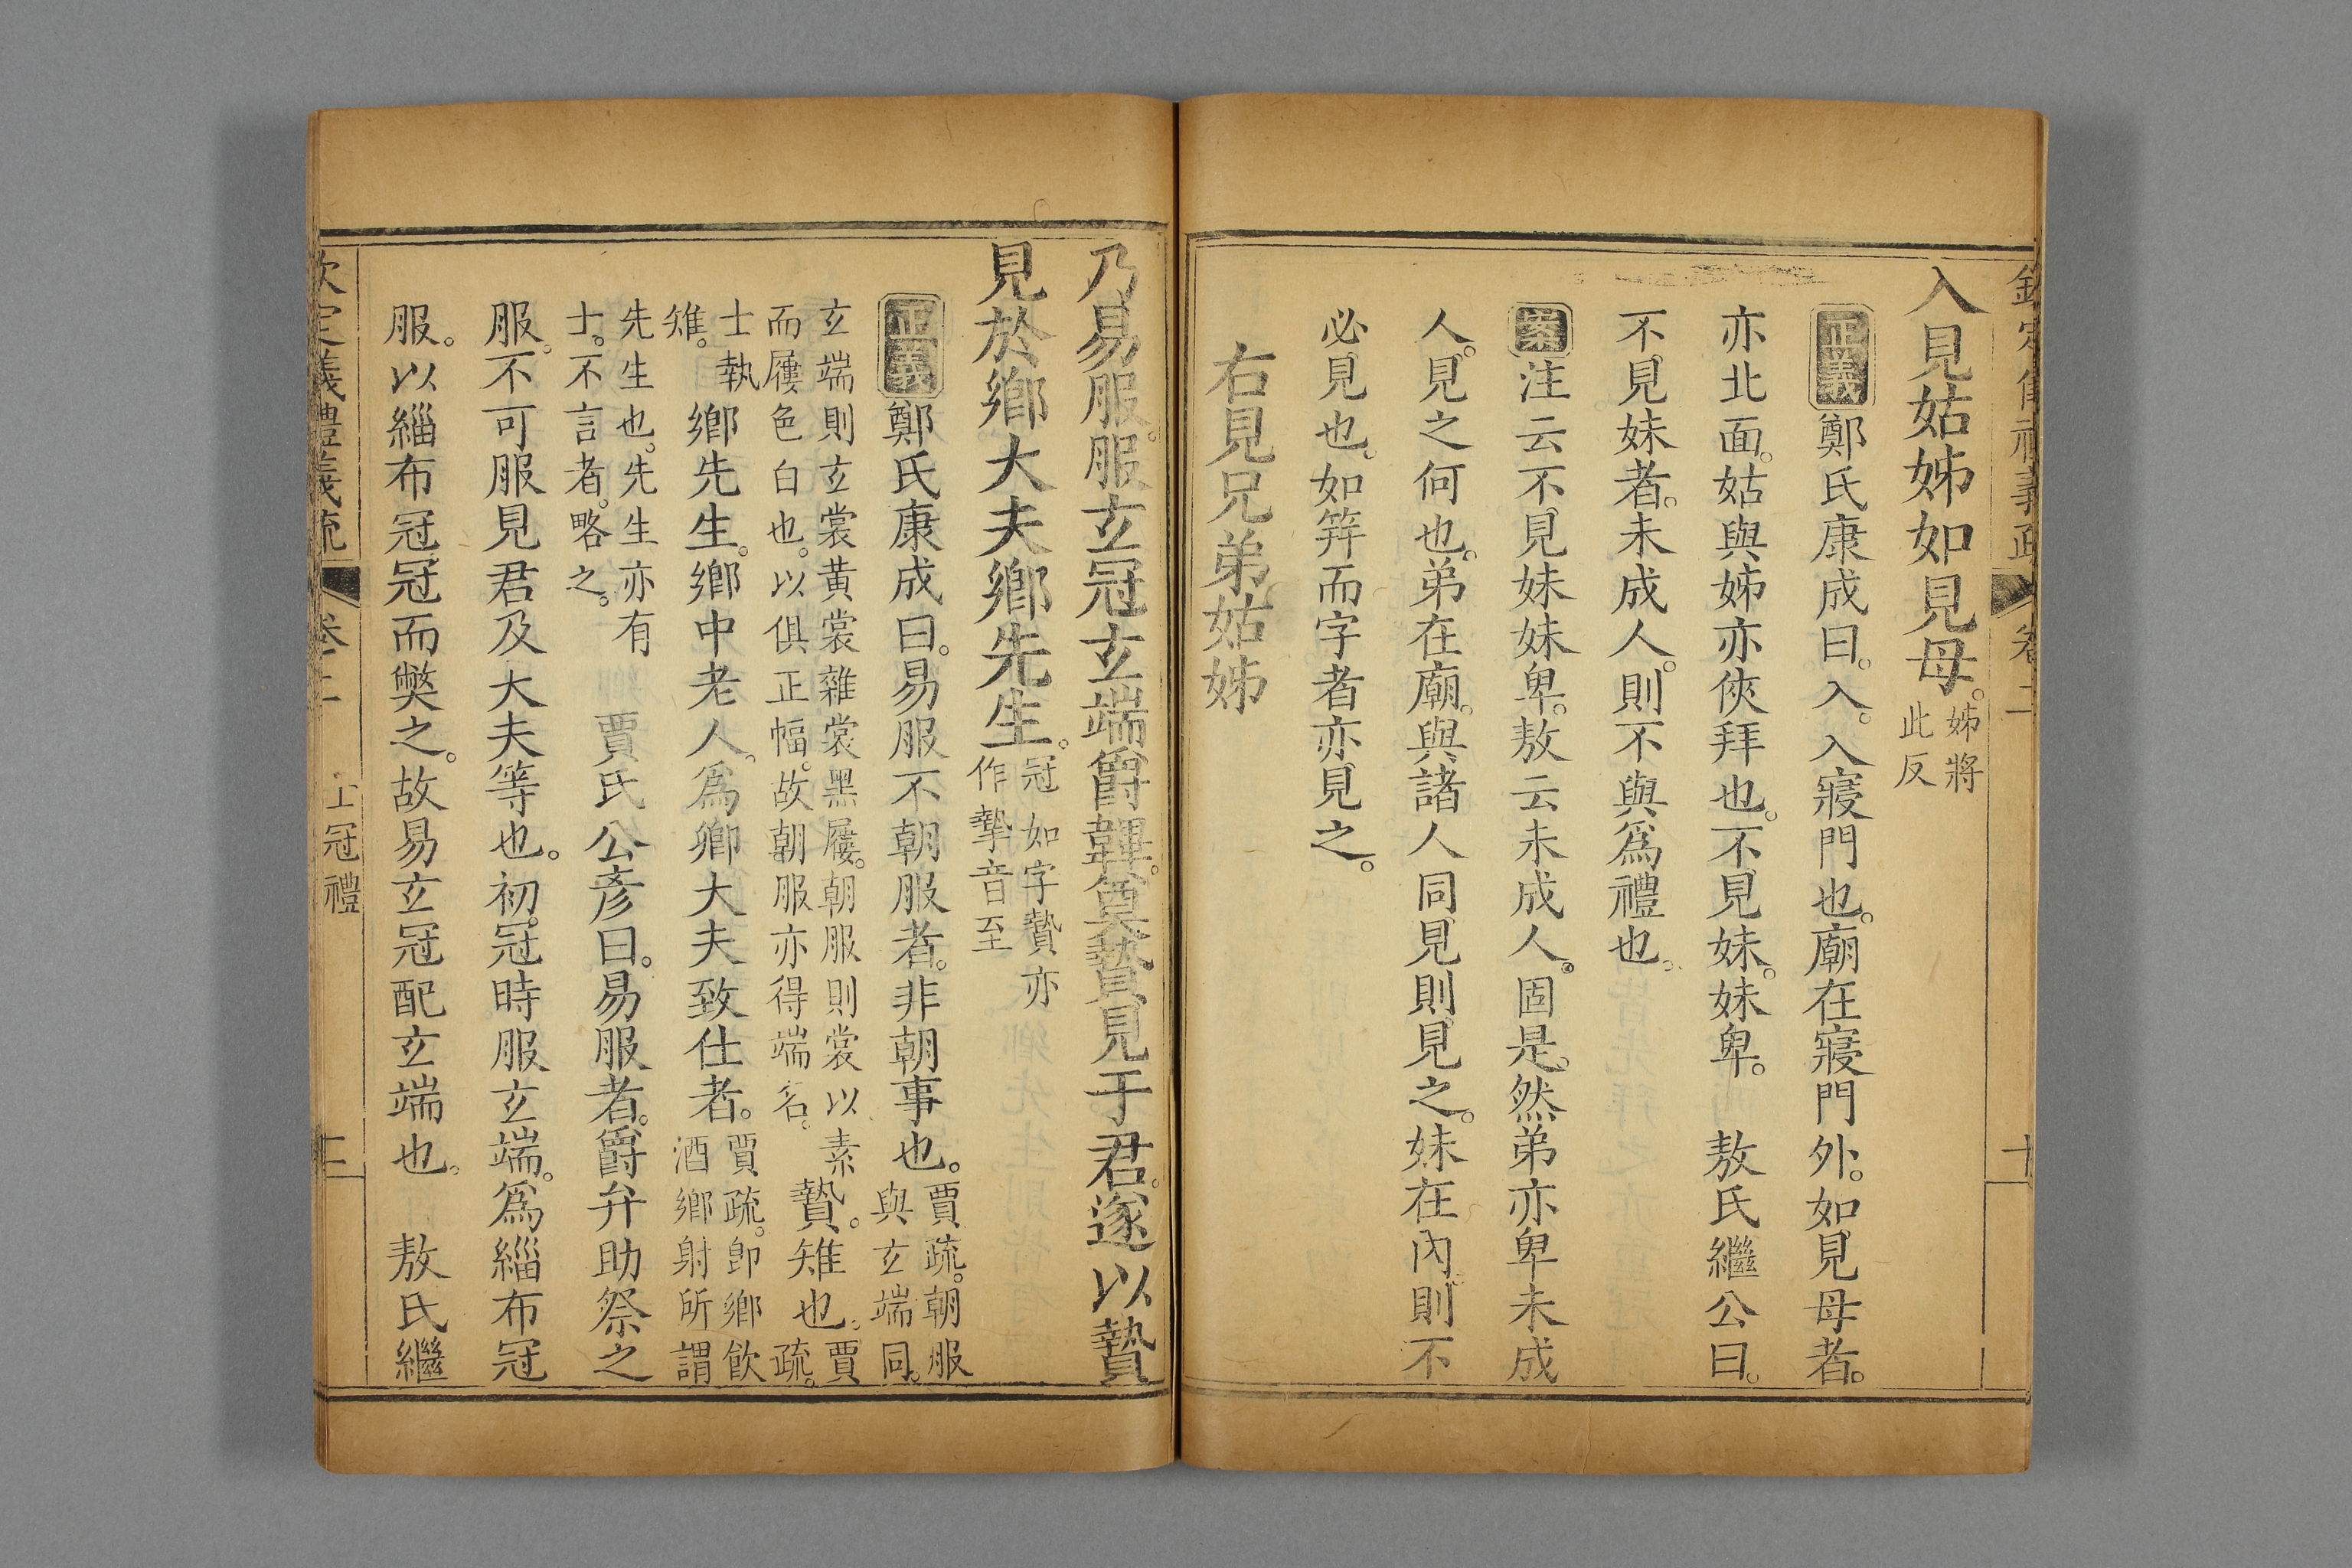 入見姑姊如見母。姊將此反
正義鄭氏康成曰。入。入寢門也。廟在寢門外。如見母者。
亦北面。姑與姊亦俠拜也。不見妹。妹卑。 敖氏繼公曰。
不見妹者。未成人。則不與爲禮也。
案注云不見妹妹卑。敖云未成人。固是。然弟亦卑未成
人。見之何也。弟在廟。與諸人同見則見之。妹在內。則不
必見也。如笄而字者亦見之。
右見兄弟姑姊
乃易服。服玄冠玄端爵韠。奠摯見于君。遂以贄
見於鄉大夫鄉先生。冠如字贄亦作摯音至
正義鄭氏康成曰。易服不朝服者。非朝事也。賈疏。朝服與玄端同。
玄端則玄裳黃裳雜裳黑屨。朝服則裳以素而屨色白也。以俱正幅。故朝服亦得端名。贄。雉也。賈疏。
士執雉。鄉先生。鄉中老人。爲鄉大夫致仕者。賈疏。卽鄉飮酒鄉射所謂
先生也。先生亦有士。不言者。略之。 賈氏公彥曰。易服者。爵弁助祭之
服。不可服見君及大夫等也。初冠時服玄端。爲緇布冠
服。以緇布冠冠而弊之。故易玄冠配玄端也。 敖氏繼
欽定儀禮義疏 卷二 士冠禮